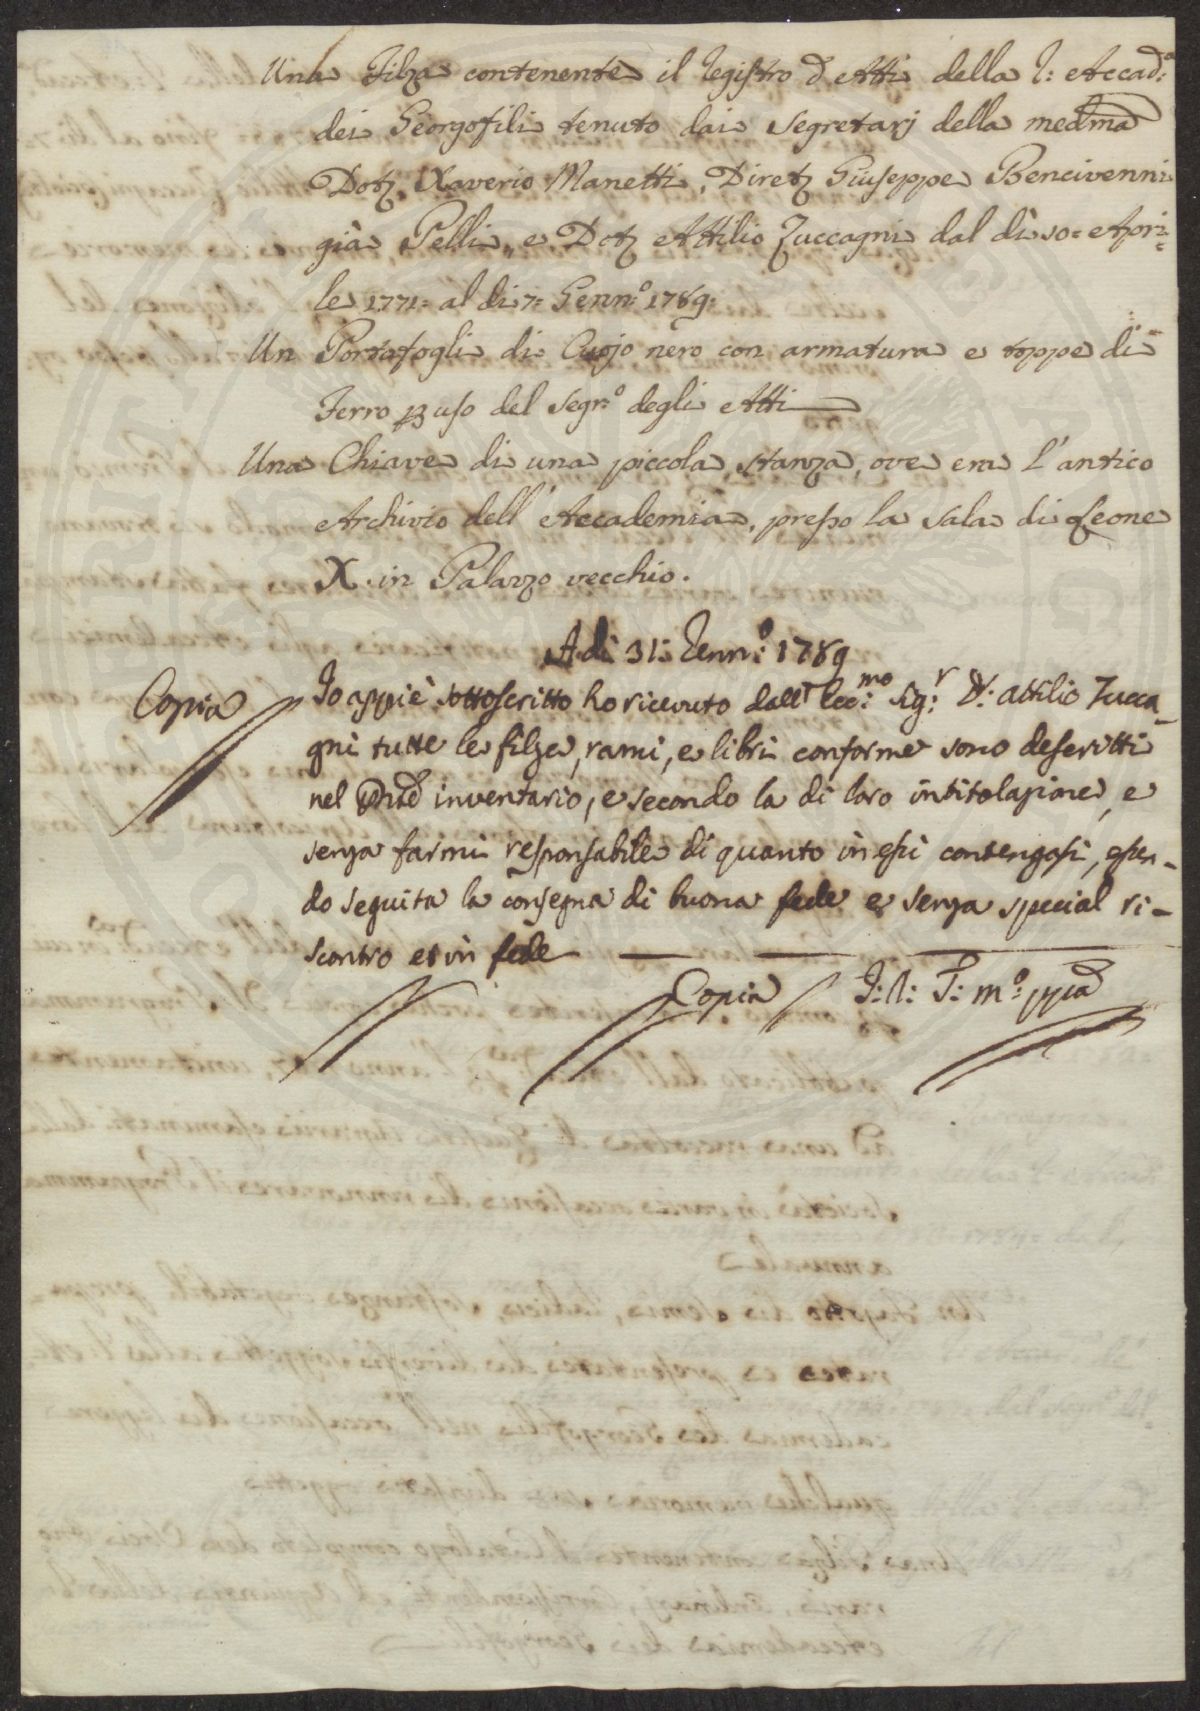 Una Filza contenente il Registro d'Atti della R: Accad:ª
dei Georgofili tenuto dai Segretarj della medma
Dotr Xaverio Manetti, Diretr Giuseppe Bencivenni
già Pelli, e Dotr Attilio Zuccagni dal dì 10= Apri=
le 1771= al di 7= Genn:º 1789=
Un Portafogli di Cuojo nero con armatura e toppe di
Ferro p uso del Segr:º degli Atti
Una Chiave di una piccola stanza, ove era l'antico
Archivio dell'Accademia, presso la Sala di Leone
X. in Palazzo vecchio.
A di 31: Genn:º 1789
Copia Io appiè sottoscritto ho ricevuto dall' Ecc:mo Sig:r Dr: Attilio Zucca-
gni tutte le filze, rami, e libri conforme sono descritti
nel pnte inventario, e secondo la di loro intitolazione, e
senza farmi responsabile di quanto in essi contengasi, essen-
do seguita la consegna di buona fede e senza special ri-
scontro et in fede
Copia m:º ppia